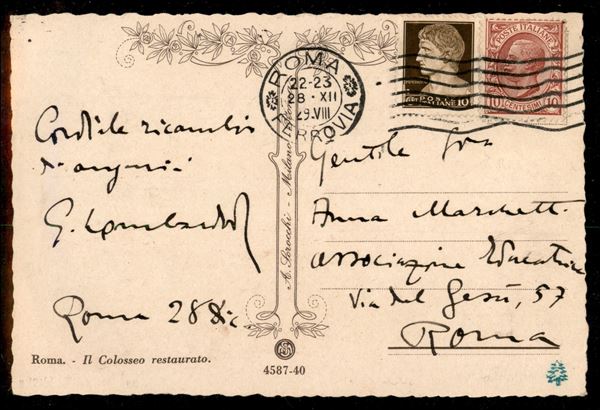 Cordiale ricambio
d'auguri
G. Lombardo
Roma 28 Dic.
Roma. - Il Colosseo restaurato.
A. Scrocchi - Milano
4587-40
ROMA
22-23
28 · XII
29.VIII
FERROVIA
POSTE
ITALIANE 10
POSTE ITALIANE
10 CENTESIMI 10
Gentile Sra
Anna Marchetti
Associazione Educatrice
Via del Gesù, 57
Roma